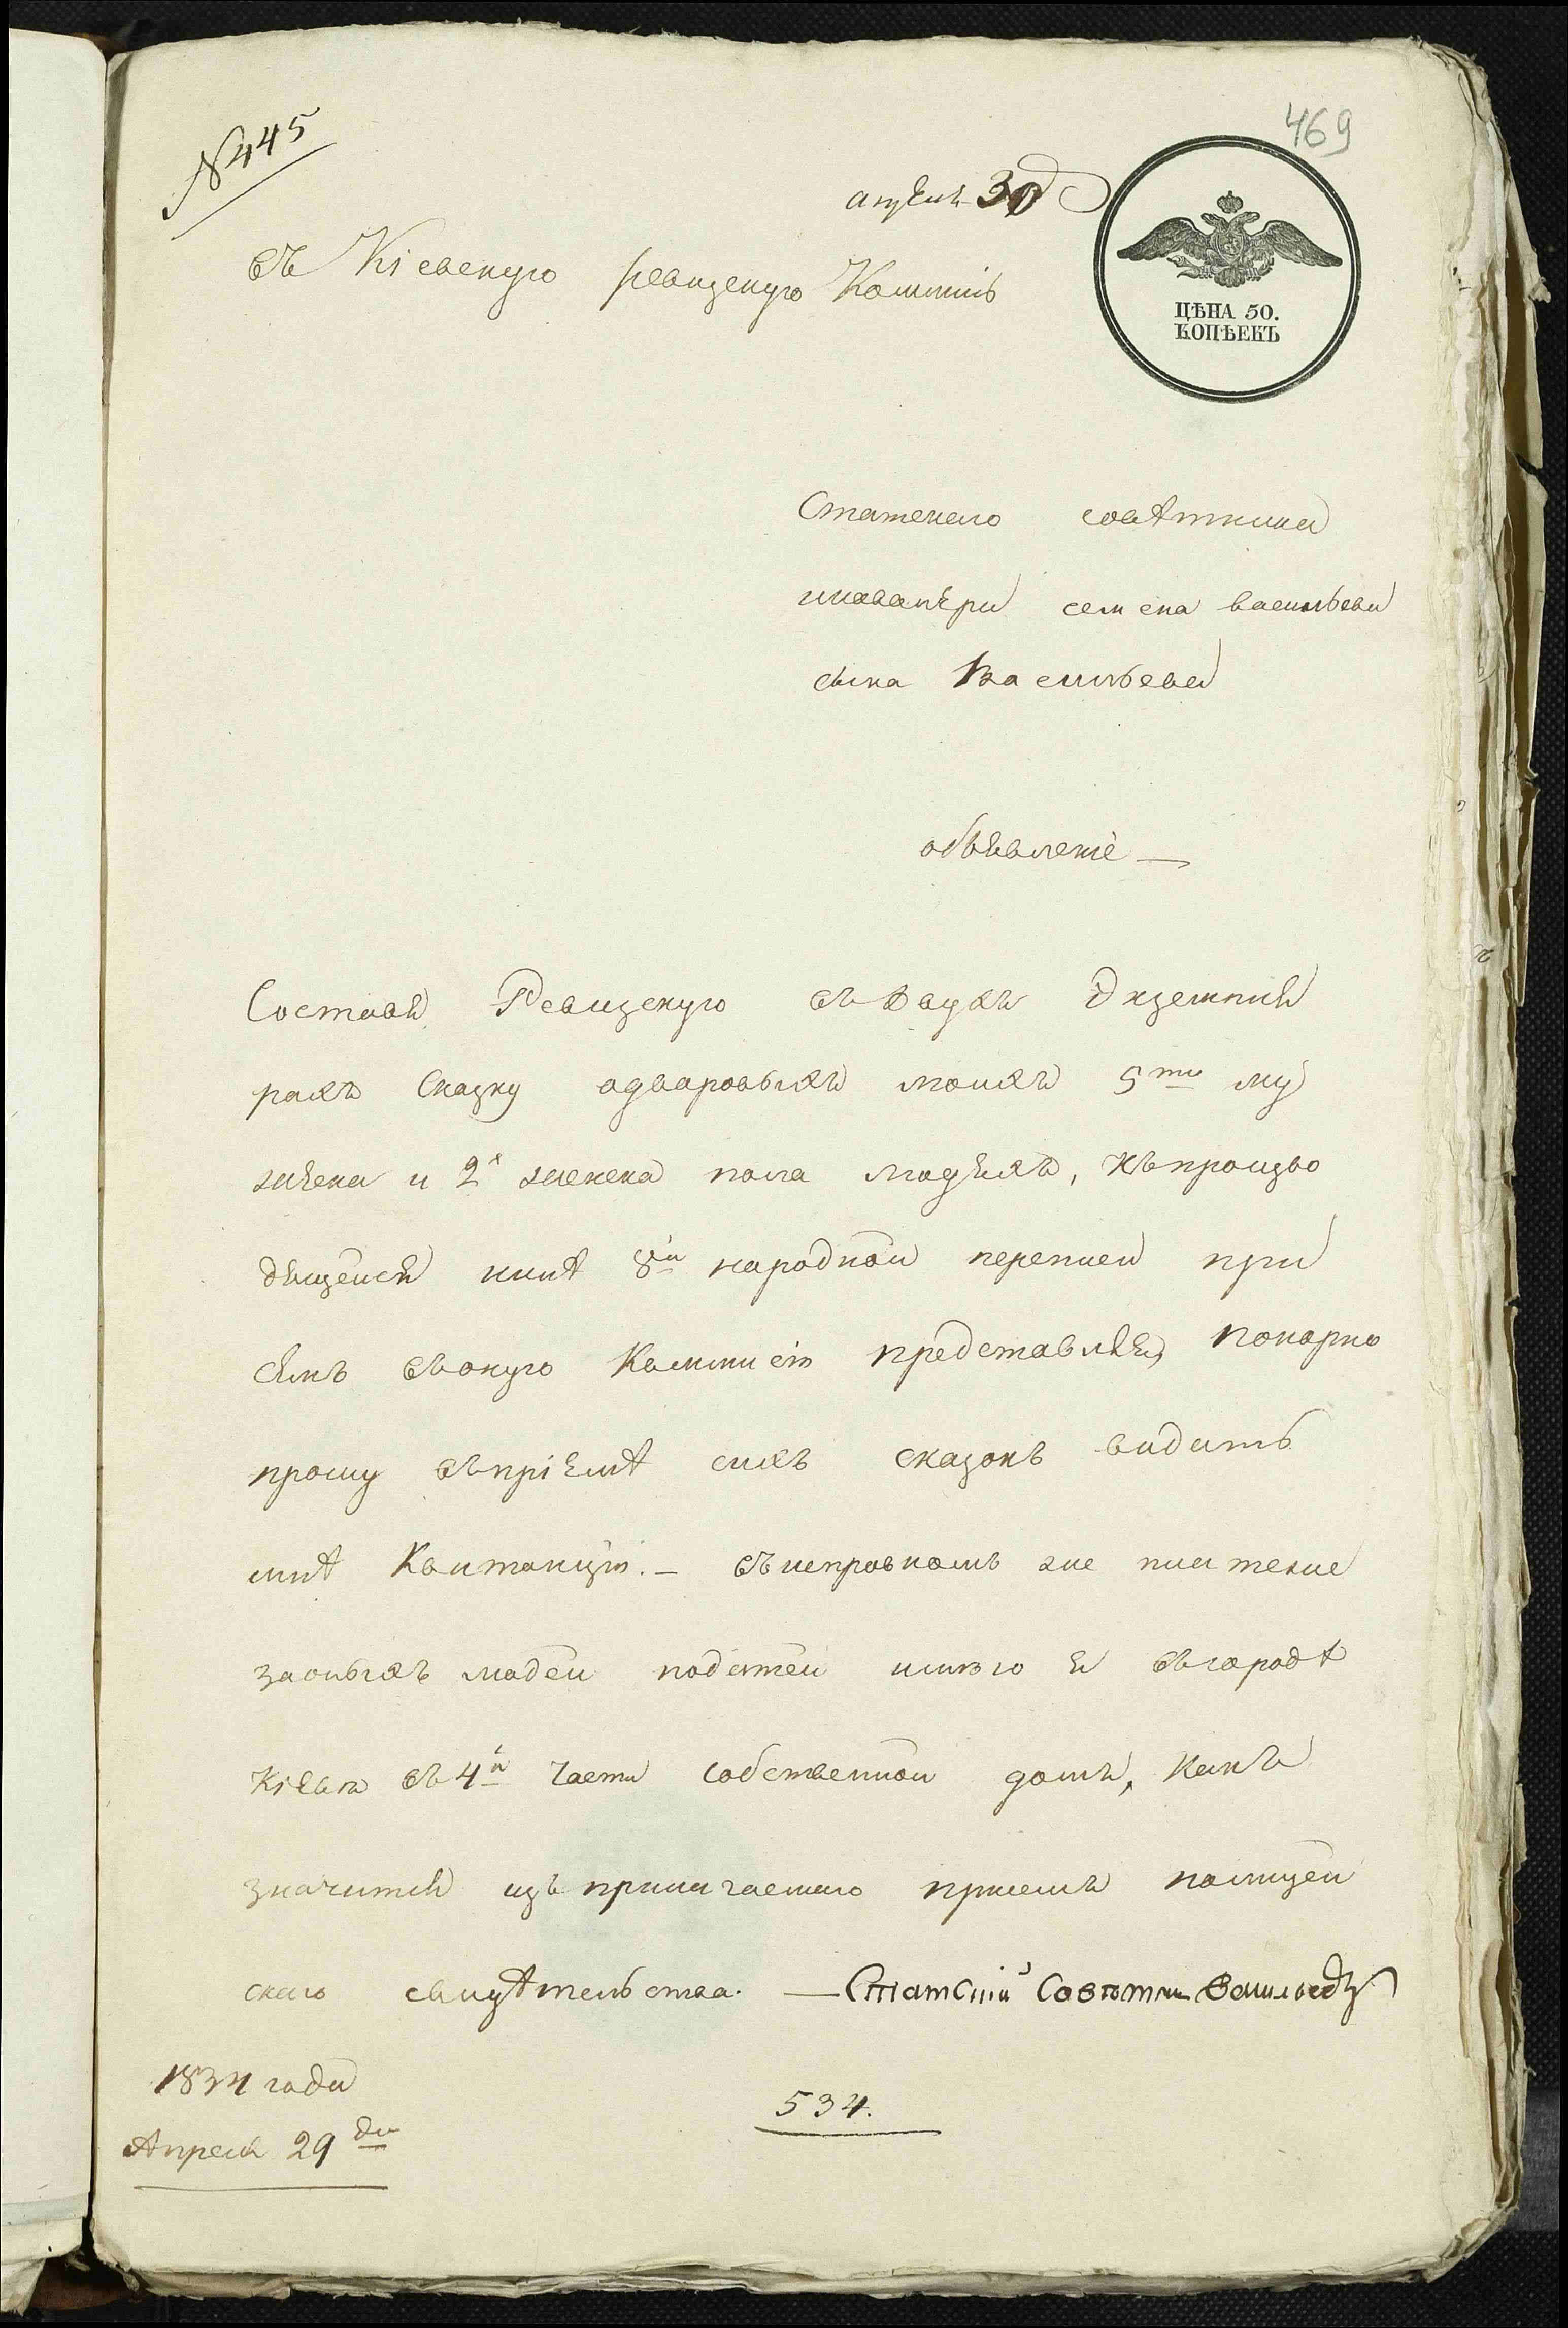 469
№ 445
апреля 30
ЦѢНА 50.
КОПѢЕКЪ
въ Кіевскую ревизскую Коммисію
Статскаго совѣтника
икавалера семена васильева
сына Васильева
объявленіе —
Составя Ревизскую въ двухъ Экземпля
рахъ Сказку одворовыхъ моихъ 5ти му
жеска и 2х женска пола людяхъ, къпроизво
дящейся нынѣ 8й народной переписи при
семъ въоную Коммисію представляя, покорно
прошу въпріемѣ сихъ сказокъ выдать
мнѣ Квитанцію. — въисправномъ же платеже
заоныхъ людей податей имѣю я въгородѣ
Кіеве въ 4й части собственной домъ, какъ
значится изъ прилагаемаго присемъ полицей
скаго свидѣтельства. — Статскій Совѣтник Васильевъ
1834 года
Апреля 29 дня
534.